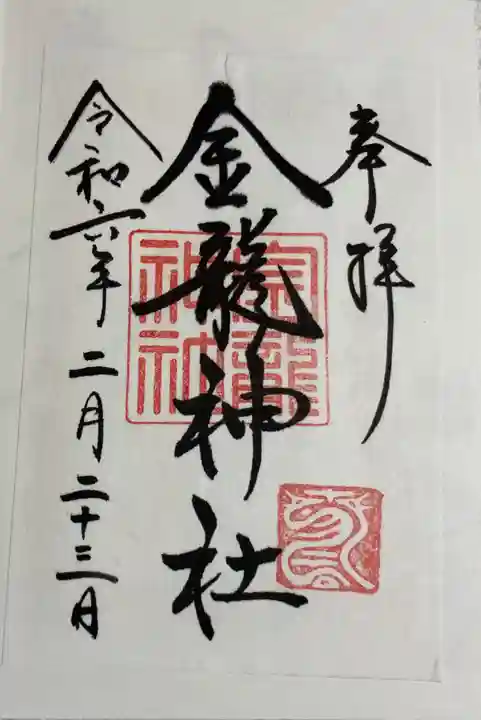 奉拝
金龍神社
令和六年二月二十三日